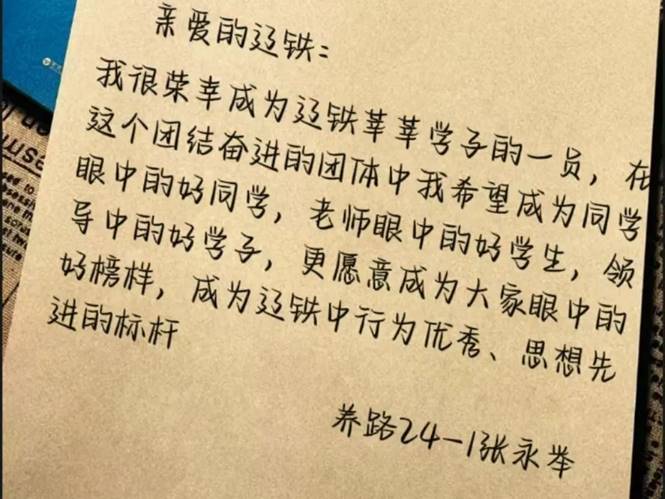 亲爱的辽铁：
我很荣幸成为辽铁莘莘学子的一员，在
这个团结奋进的团体中我希望成为同学
眼中的好同学，老师眼中的好学生，领
导中的好学子，更愿意成为大家眼中的
好榜样，成为辽铁中行为优秀、思想先
进的标杆
养路24-1张永举